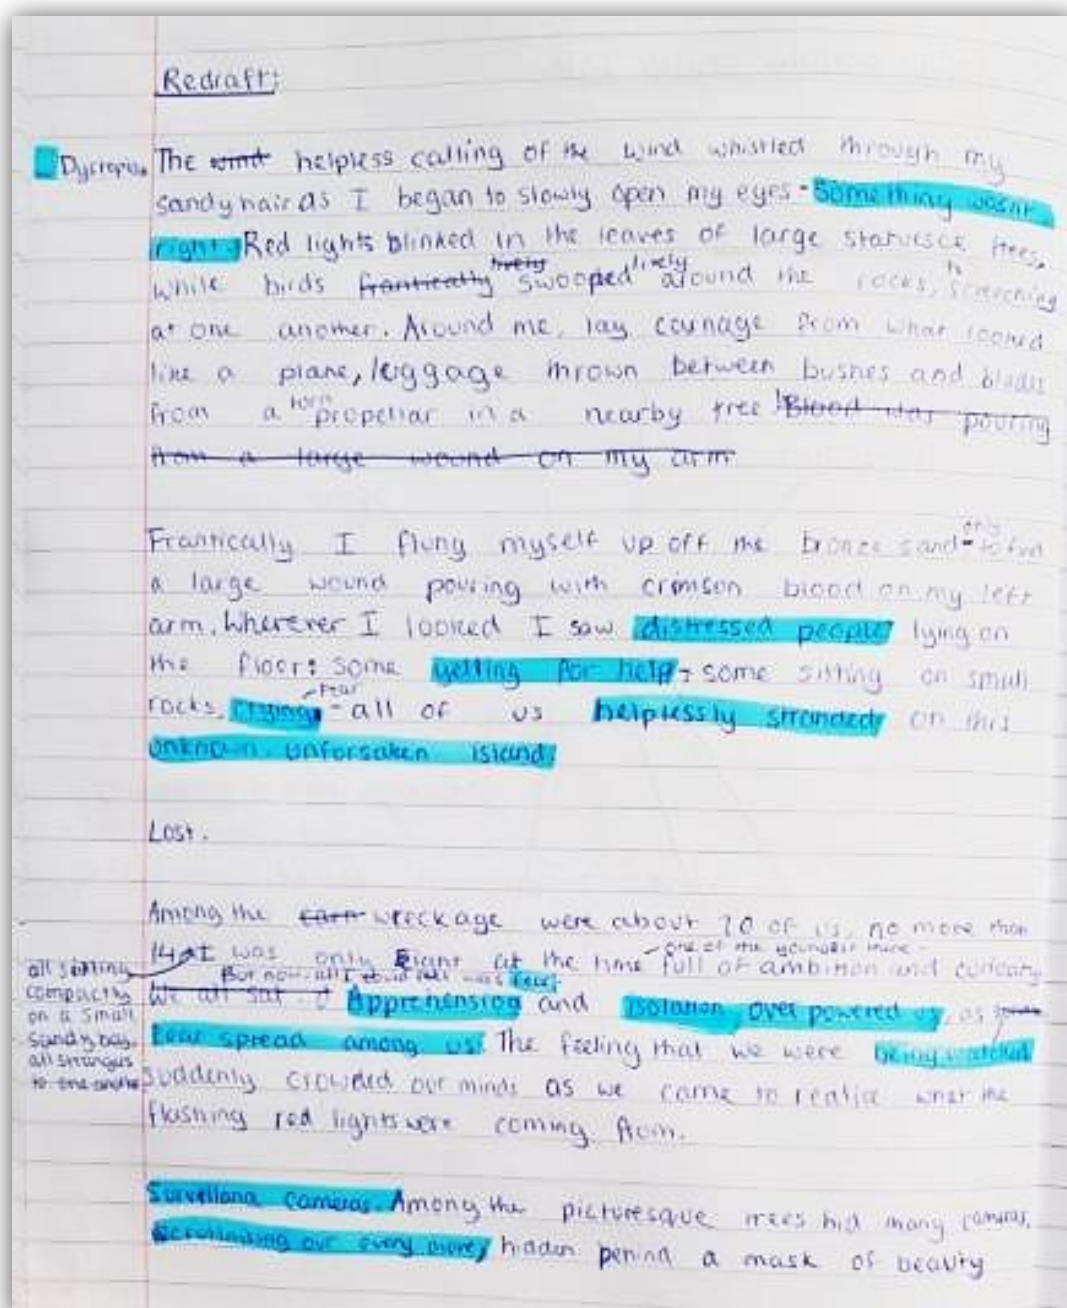 Redraft:
Dystopia. The wind helpless calling of the wind whistled through my
sandy hair as I began to slowly open my eyes - Something wasnt
right. Red lights blinked in the leaves of large statuesce trees,
while birds frantically lively swooped lively around the rocks, screeching
at one another. Around me, lay carnage from what looked
like a plane, luggage thrown between bushes and blades
from a torn propellar in a nearby tree! Blood was pouring
from a large wound on my arm
Frantically I flung myself up off the bronze sand - only to find
a large wound pouring with crimson blood on my left
arm. Wherever I looked I saw distressed people lying on
the floor: some yelling for help - some sitting on small
rocks, crying - fear - all of us helplessly stranded on this
unknown unforsaken island.
Lost.
Among the wreckage were about 20 of us, no more than
14. I was only at the time - one of the youngest there - full of ambition and curiosity
But now all I could feel was fear.
all sitting
compactly
on a small
sandy bay.
all strangers
to one another
We all sat. Apprehension and isolation overpowered us, as
fear spread among us. The feeling that we were being watched
suddenly crowded our minds as we came to realise what the
flashing red lights were coming from.
Survellana cameras. Among the picturesque trees hid many cameras,
scrutinising our every move, hidden behind a mask of beauty